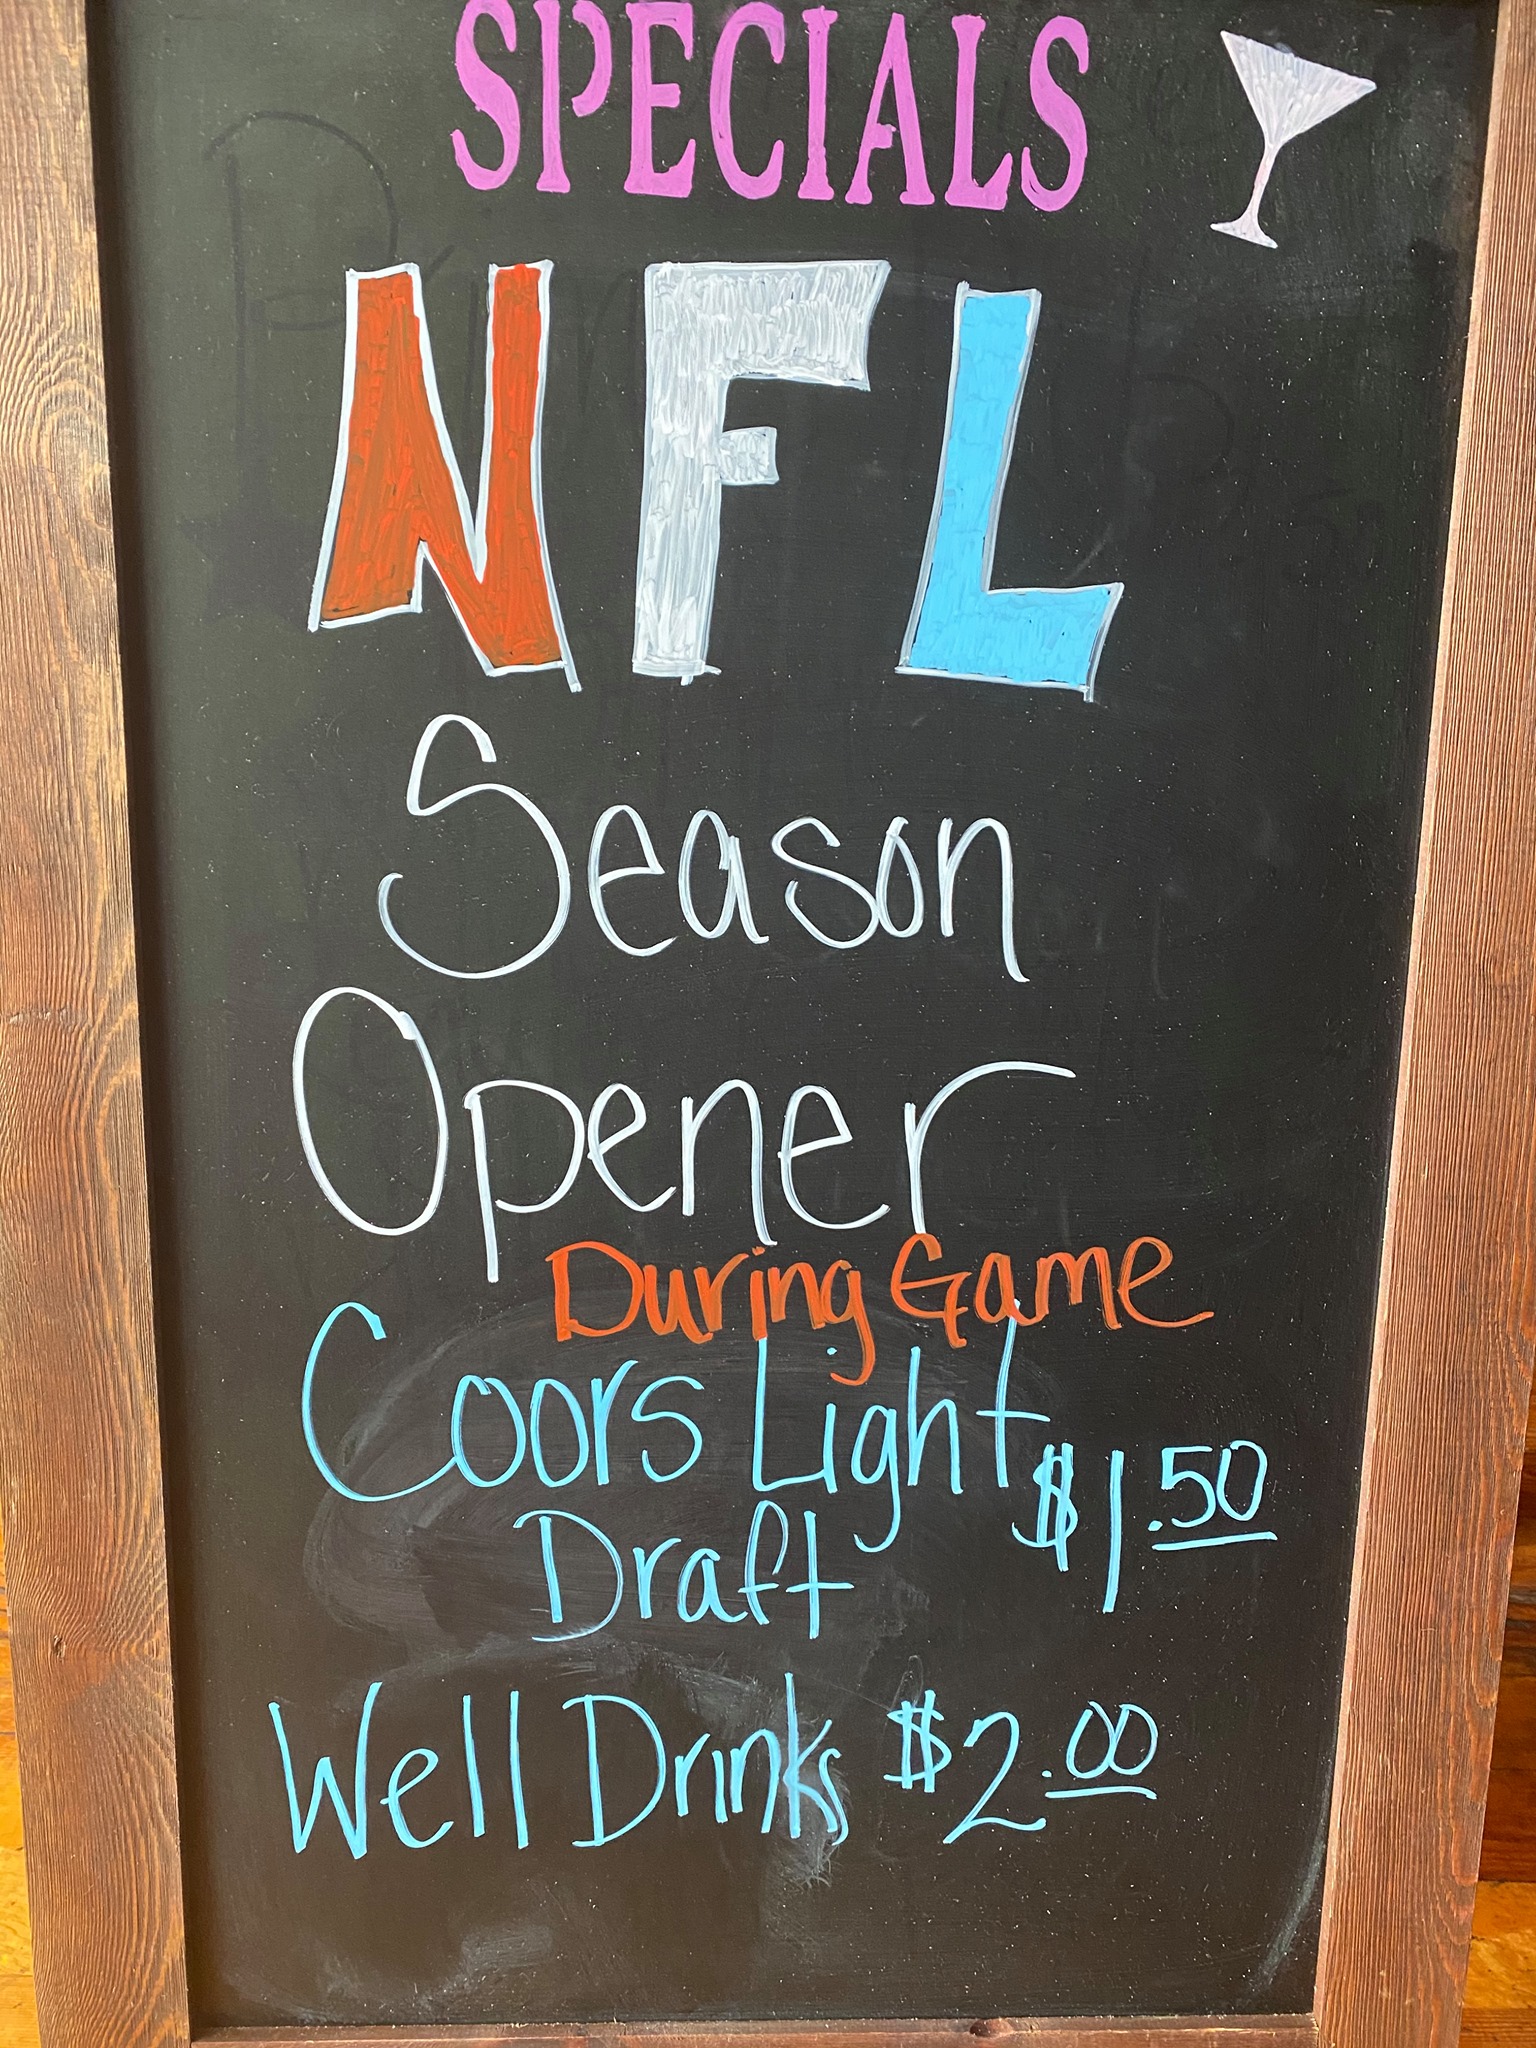 SPECIALS
NFL
Season
Opener
During Game
Coors Light
$1.50
Draft
Well Drinks $2.00